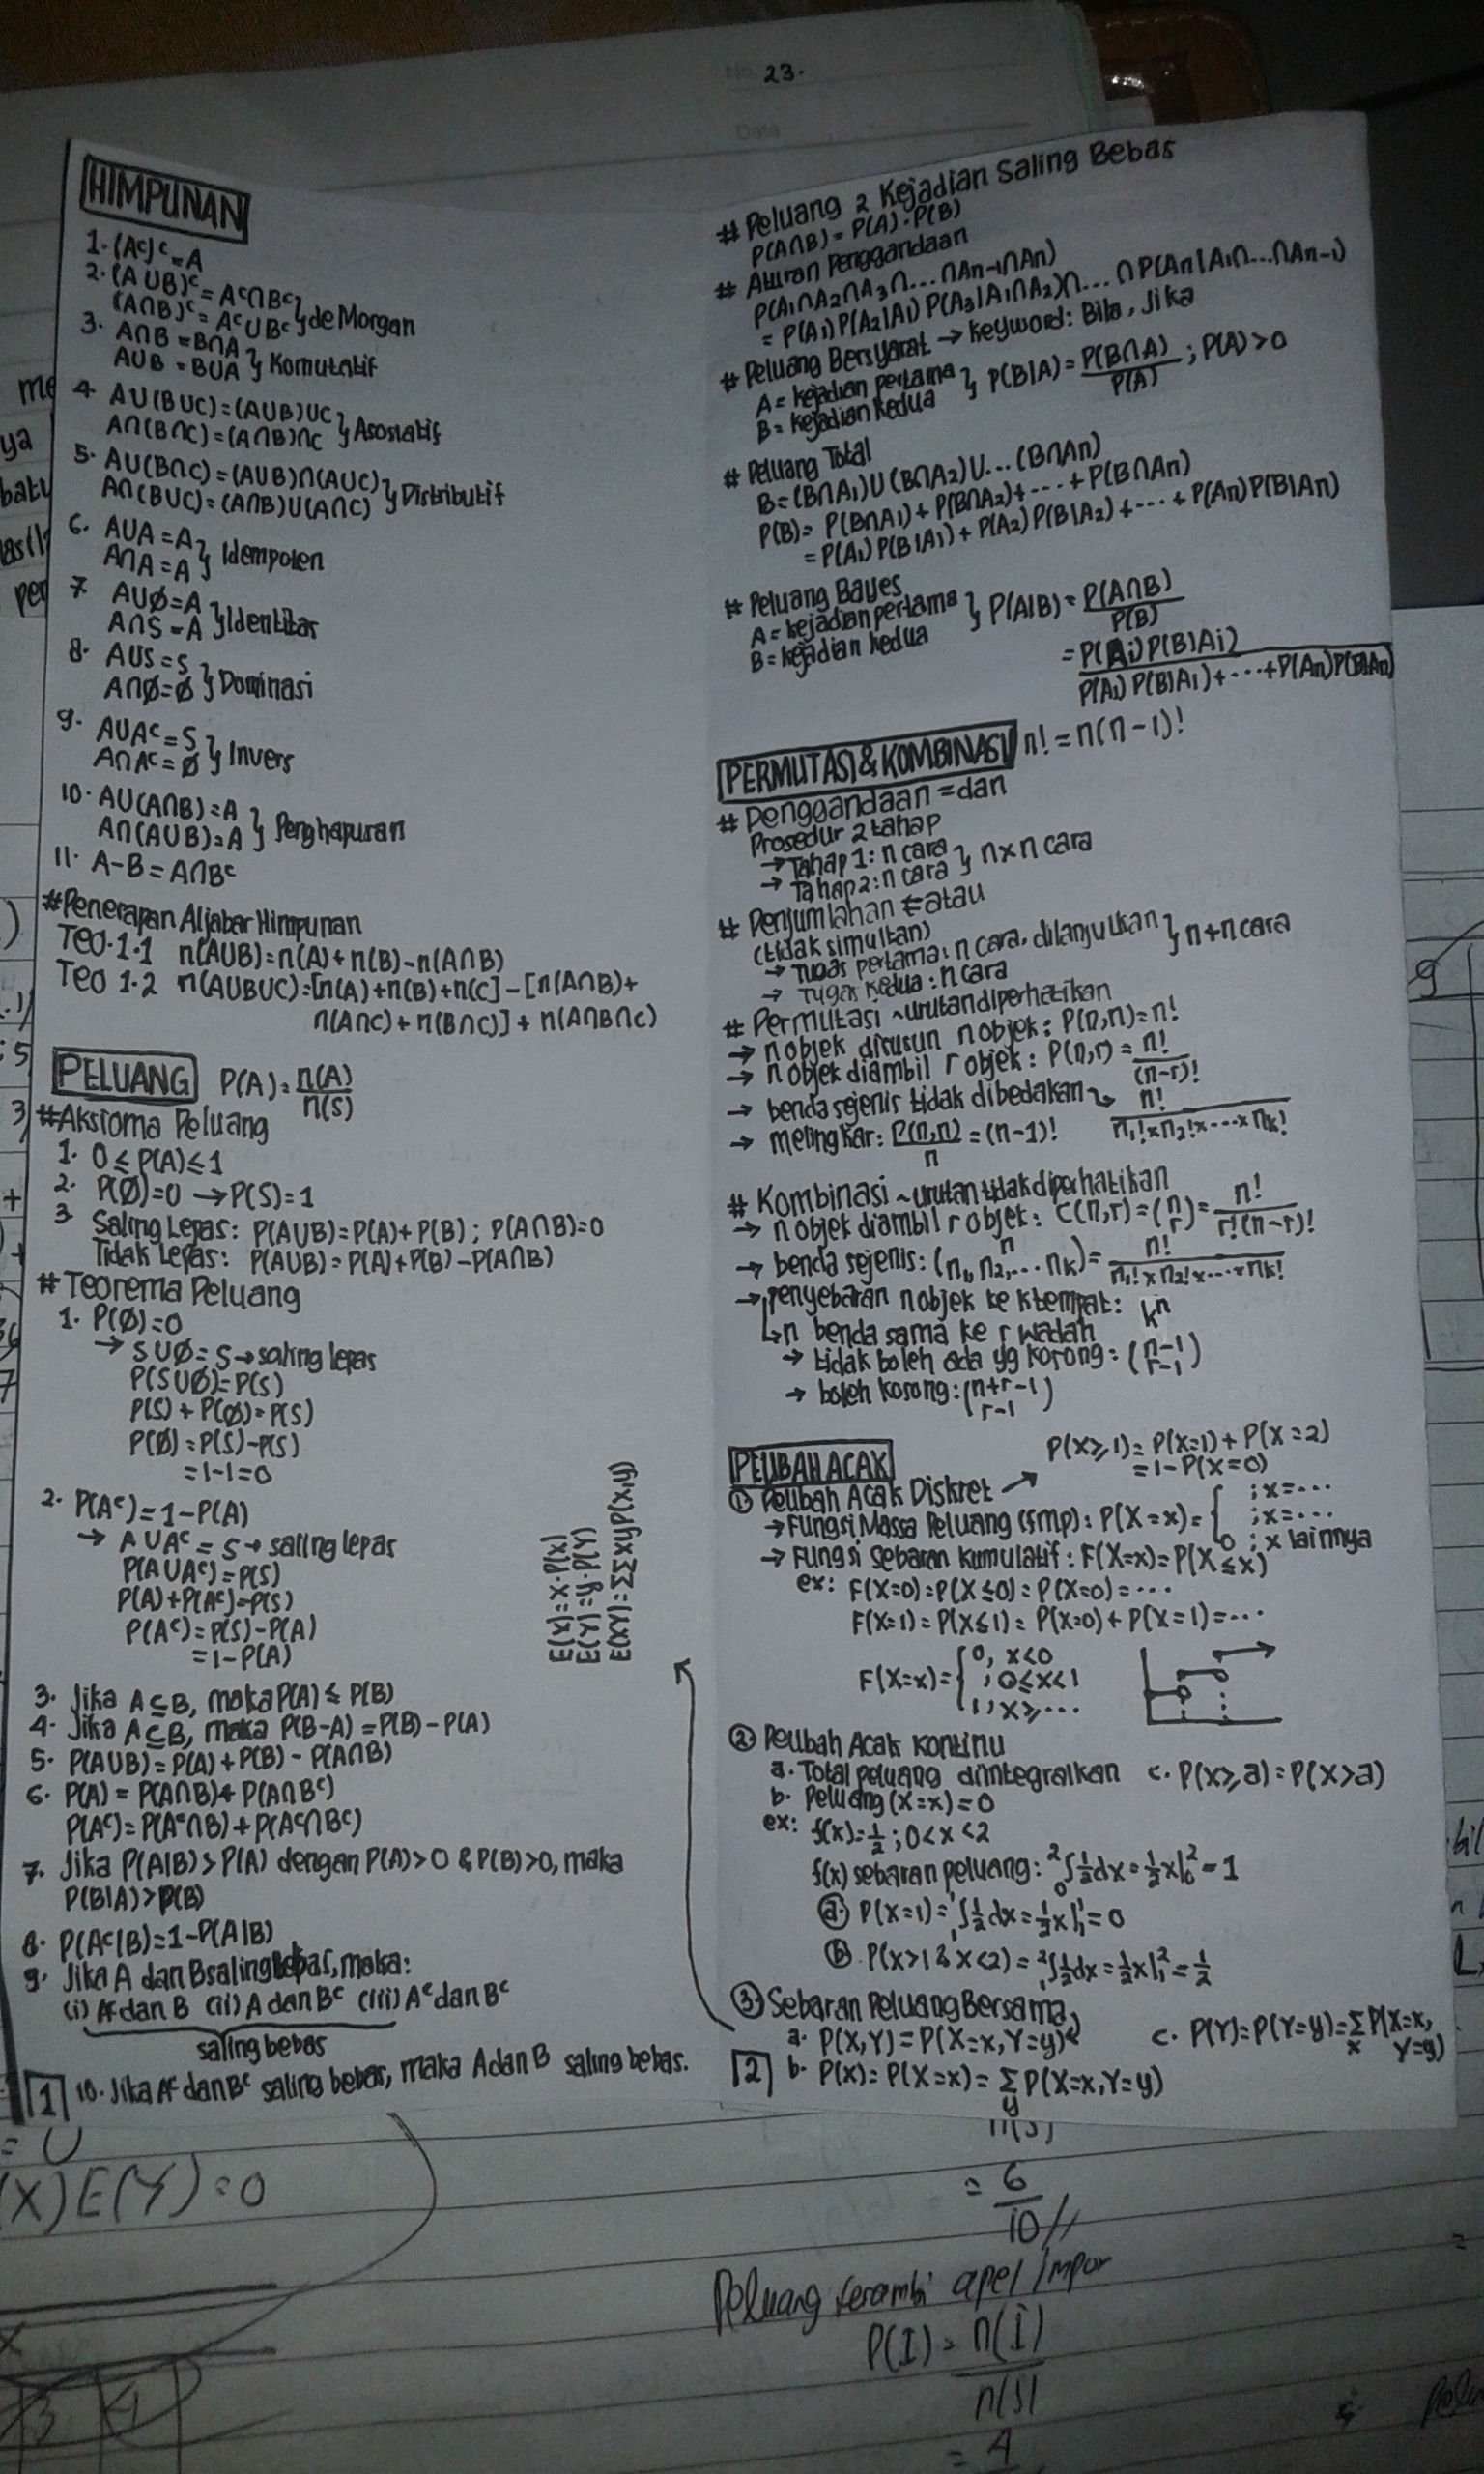 23.
HIMPUNAN
1. (Aᶜ)ᶜ = A
2. (A∪B)ᶜ = Aᶜ∩Bᶜ
(A∩B)ᶜ = Aᶜ∪Bᶜ } de Morgan
3. A∩B = B∩A
A∪B = B∪A } Komutatif
4. A∪(B∪C) = (A∪B)∪C
A∩(B∩C) = (A∩B)∩C } Asosiatif
5. A∪(B∩C) = (A∪B)∩(A∪C)
A∩(B∪C) = (A∩B)∪(A∩C) } Distributif
6. A∪A = A
A∩A = A } Idempoten
7. A∪Ø = A
A∩S = A } Identitas
8. A∪S = S
A∩Ø = Ø } Dominasi
9. A∪Aᶜ = S
A∩Aᶜ = Ø } Invers
10. A∪(A∩B) = A
A∩(A∪B) = A } Penghapusan
11. A-B = A∩Bᶜ
#Penerapan Aljabar Himpunan
Teo. 1.1 n(A∪B) = n(A) + n(B) - n(A∩B)
Teo 1.2 n(A∪B∪C) = [n(A) + n(B) + n(C] - [n(A∩B) +
n(A∩C) + n(B∩C)] + n(A∩B∩C)
PELUANG P(A) = n(A)/n(S)
#Aksioma Peluang
1. 0 ≤ P(A) ≤ 1
2. P(Ø) = 0 → P(S) = 1
3 Saling Lepas: P(A∪B) = P(A) + P(B) ; P(A∩B) = 0
Tidak Lepas: P(A∪B) = P(A) + P(B) - P(A∩B)
# Teorema Peluang
1. P(Ø) = 0
→ S∪Ø = S → saling lepas
P(S∪Ø) = P(S)
P(S) + P(Ø) = P(S)
P(Ø) = P(S) - P(S)
= 1-1 = 0
2. P(Aᶜ) = 1 - P(A)
→ A∪Aᶜ = S → saling lepas
P(A∪Aᶜ) = P(S)
P(A) + P(Aᶜ) = P(S)
P(Aᶜ) = P(S) - P(A)
= 1 - P(A)
E(X) = x · P(X)
E(Y) = y · P(Y)
E(XY) = ΣΣxyP(x,y)
3. Jika A⊆B, maka P(A) ≤ P(B)
4. Jika A⊆B, maka P(B-A) = P(B) - P(A)
5. P(A∪B) = P(A) + P(B) - P(A∩B)
6. P(A) = P(A∩B) + P(A∩Bᶜ)
P(Aᶜ) = P(Aᶜ∩B) + P(Aᶜ∩Bᶜ)
7. Jika P(A|B) > P(A) dengan P(A) > 0 & P(B) > 0, maka
P(B|A) > P(B)
8. P(Aᶜ|B) = 1 - P(A|B)
9. Jika A dan B saling bebas, maka:
(i) Aᶜ dan B (ii) A dan Bᶜ (iii) Aᶜ dan Bᶜ
saling bebas
1 10. Jika Aᶜ dan Bᶜ saling bebas, maka A dan B saling bebas.
# Peluang 2 Kejadian Saling Bebas
P(A∩B) = P(A) · P(B)
# Aturan Penggandaan
P(A₁∩A₂∩A₃∩...∩An-1∩An)
= P(A₁) P(A₂|A₁) P(A₃|A₁∩A₂)∩...∩P(An|A₁∩...∩An-1)
# Peluang Bersyarat → Keyword: Bila, Jika
A = kejadian pertama
B = kejadian kedua } P(B|A) = P(B∩A)/P(A) ; P(A) > 0
# Peluang Total
B = (B∩A₁)∪(B∩A₂)∪...(B∩An)
P(B) = P(B∩A₁) + P(B∩A₂) + ... + P(B∩An)
= P(A₁) P(B|A₁) + P(A₂) P(B|A₂) + ... + P(An) P(B|An)
# Peluang Bayes
A = kejadian pertama
B = kejadian kedua } P(A|B) = P(A∩B)/P(B)
= P(Ai) P(B|Ai)/P(A₁) P(B|A₁) + ... + P(An) P(B|An)
PERMUTASI & KOMBINASI n! = n(n-1)!
# Penggandaan = dan
Prosedur 2 tahap
→ Tahap 1: n cara
→ Tahap 2: n cara } n×n cara
# Penjumlahan = atau
(tidak simultan)
→ Tugas pertama: n cara, dilanjutkan
→ Tugas kedua: n cara } n+n cara
# Permutasi ~ urutan diperhatikan
→ n objek disusun n objek: P(n,n) = n!
→ n objek diambil r objek: P(n,r) = n!/(n-r)!
→ benda sejenis tidak dibedakan → n!/n₁!×n₂!×...×nk!
→ melingkar: P(n,n)/n = (n-1)!
# Kombinasi ~ urutan tidak diperhatikan
→ n objek diambil r objek: C(n,r) = (n r) = n!/r!(n-r)!
→ benda sejenis: (n n₁, n₂, ... nk) = n!/n₁!×n₂!×...×nk!
→ penyebaran n objek ke k tempat: kⁿ
↳ n benda sama ke r wadah
→ tidak boleh ada yg kosong: (n-1 r-1)
→ boleh kosong: (n+r-1 r-1)
PEUBAH ACAK
P(X≥1) = P(X=1) + P(X=2)
= 1 - P(X=0)
① Peubah Acak Diskret
→ Fungsi Massa Peluang (fmp): P(X=x) = { ; x = ...
; x = ...
0 ; x lainnya
→ Fungsi Sebaran Kumulatif: F(X=x) = P(X≤x)
ex: F(X=0) = P(X≤0) = P(X=0) = ...
F(X=1) = P(X≤1) = P(X=0) + P(X=1) = ...
F(X=x) = { 0, x<0
; 0≤x<1
1, x≥...
② Peubah Acak Kontinu
a. Total peluang diintegralkan c. P(X≥a) = P(X>a)
b. Peluang (X=x) = 0
ex: f(x) = 1/2 ; 0<x<2
f(x) sebaran peluang: ²∫₀ 1/2 dx = 1/2 x|²₀ = 1
ⓐ P(X=1) = ¹∫₁ 1/2 dx = 1/2 x|¹₁ = 0
ⓑ P(X>1 & X<2) = ²∫₁ 1/2 dx = 1/2 x|²₁ = 1/2
③ Sebaran Peluang Bersama
a. P(X,Y) = P(X=x, Y=y) c. P(Y) = P(Y=y) = Σx P(X=x,
Y=y)
2 b. P(X) = P(X=x) = Σy P(X=x, Y=y)
(X)E(Y) = 0
n(S)
= 6/10 //
Peluang terambil apel impor
P(I) = n(I)/n(S)
= 4